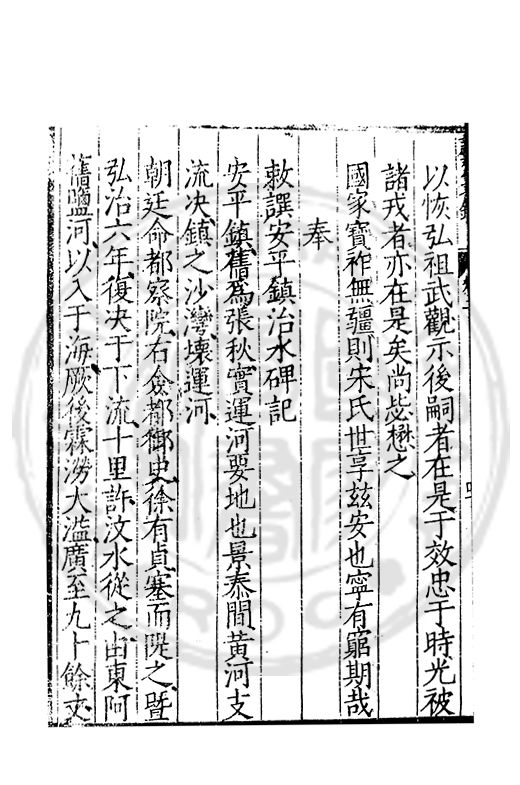 以恢弘祖武觀示後嗣者在是于效忠于時光被
諸戎者亦在是矣尚毖懋之
國家寶祚無疆則宋氏世享兹安也寧有窮期哉
奉
敕譔安平鎮治水碑記
安平鎮舊為張秋實運河要地也景泰間黄河支
流决鎮之沙灣壞運河
朝廷命都察院右僉都御史徐有貞塞而隄之暨
弘治六年復决于下流十里許汶水從之由東阿
舊鹽河以入于海厥後霖澇大溢廣至九十餘丈